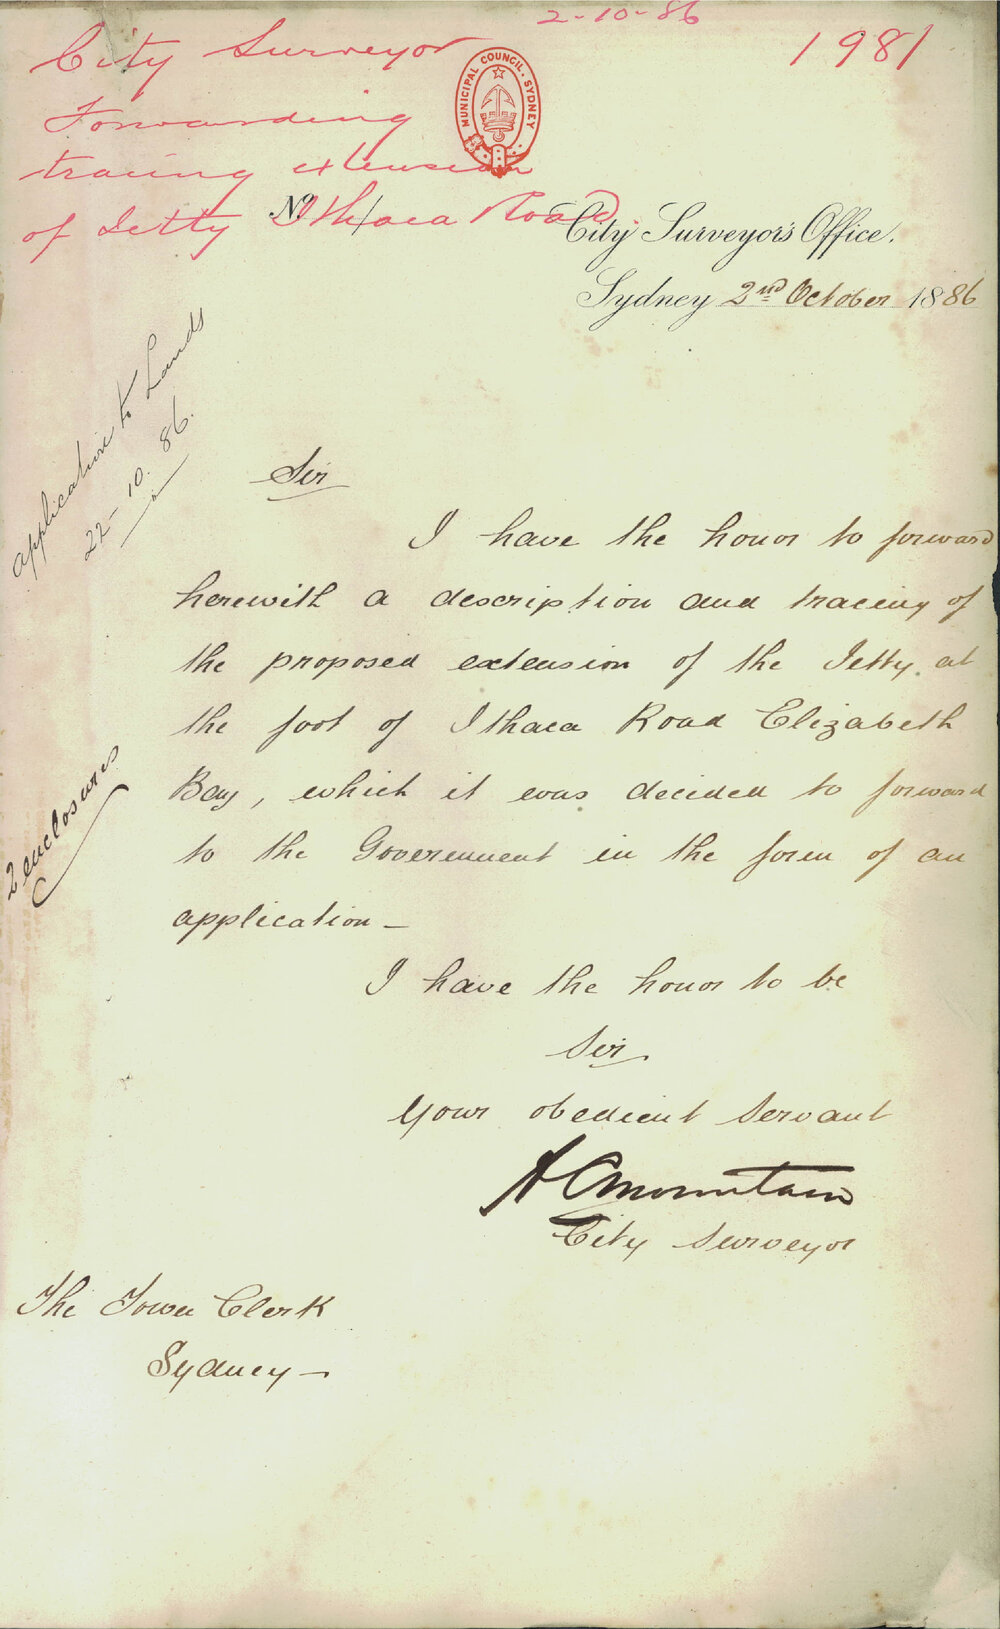 2-10-86
1981
City Surveyor
Forwarding
tracing extension
of Jetty Ithaca Road.
MUNICIPAL COUNCIL. SYDNEY
No
City Surveyor's Office.
Sydney 2nd October 1886
application to Lands
22-10.86.
2 enclosures
Sir
I have the honor to forward
herewith a description and tracing of
the proposed extension of the Jetty at
the foot of Ithaca Road Elizabeth
Bay, which it was decided to forward
to the Government in the form of an
application—
I have the honor to be
Sir
Your obedient Servant
A C Mountain
City Surveyor
The Town Clerk
Sydney—